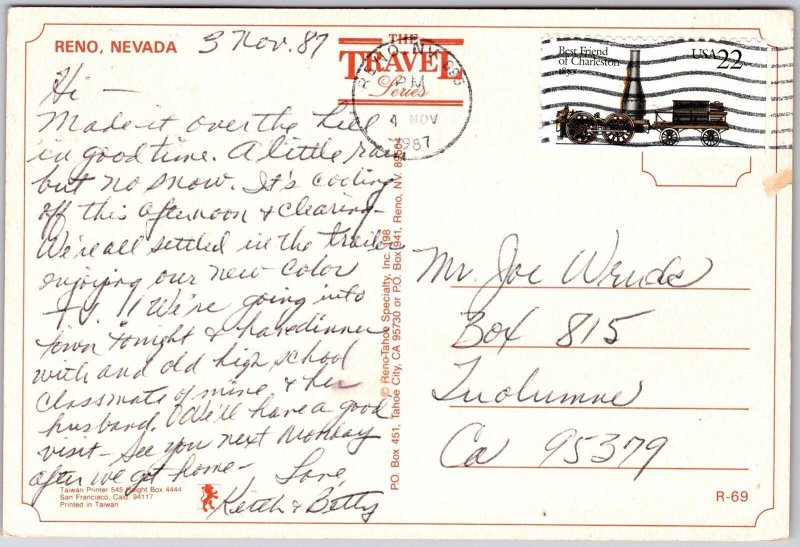 RENO, NEVADA
3 Nov. 87
Hi —
Made it over the hill
in good time. A little rain
but no snow. It's cooling
off this afternoon & clearing-
We're all settled in the trailer
enjoying our new color
T.V. We're going into
town tonight & have dinner
with and old high school
classmate of mine & her
husband. We'll have a good
visit — See you next Monday
after we get home —
Love,
Keith & Betty
Taiwan Printer 545 Box 4444
San Francisco, Calif. 94117
Printed in Taiwan
THE
TRAVEL
Series
RENO, NV
PM
4 NOV
1987
© Reno-Tahoe Specialty, Inc.
PO. Box 451, Tahoe City, CA 95730 or P.O. Box 941, Reno, NV.
Best Friend
of Charleston
1830
USA 22
Mr. Joe
Box 815
Tuolumne
Ca 95379
R-69